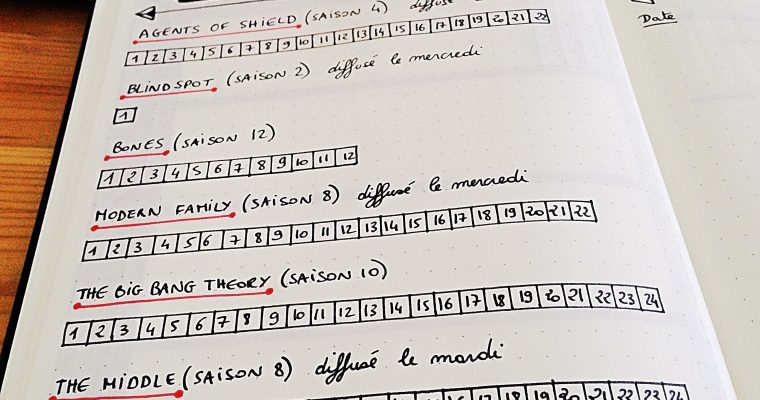 AGENTS OF SHIELD (SAISON 4) diffusé
Date
1 2 3 4 5 6 7 8 9 10 11 12 13 14 15 16 17 18 19 20 21 22
BLINDSPOT (SAISON 2) diffusé le mercredi
1
BONES (SAISON 12)
1 2 3 4 5 6 7 8 9 10 11 12
MODERN FAMILY (SAISON 8) diffusé le mercredi
1 2 3 4 5 6 7 8 9 10 11 12 13 14 15 16 17 18 19 20 21 22
THE BIG BANG THEORY (SAISON 10)
1 2 3 4 5 6 7 8 9 10 11 12 13 14 15 16 17 18 19 20 21 22 23 24
THE MIDDLE (SAISON 8) diffusé le mardi
17 18 19 20 21 22 23 24